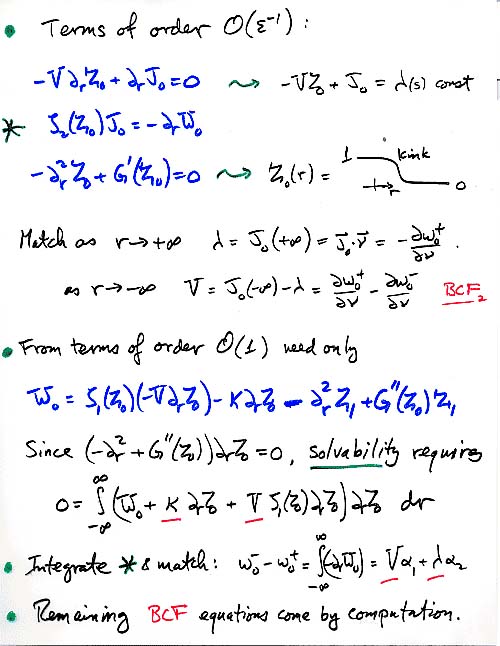 • Terms of order O(ε⁻¹):
-V∂ᵣZ₀ + ∂ᵣJ₀ = 0 ⤳ -VZ₀ + J₀ = λ(s) const
* ζ₂(Z₀)J₀ = -∂ᵣW₀
-∂ᵣ²Z₀ + G'(Z₀) = 0 ⤳ Z₀(r) = 1 kink r 0
Match as r→+∞ λ = J₀(+∞) = J⃗₀·ν⃗ = -∂w₀⁺/∂ν.
as r→-∞ V = J₀(-∞) - λ = ∂w₀⁺/∂ν - ∂w₀⁻/∂ν BCF₂
• From terms of order O(1) need only
W₀ = ζ₁(Z₀)(-V∂ᵣZ₀) - K∂ᵣZ₀ - ∂ᵣ²Z₁ + G''(Z₀)Z₁
Since (-∂ᵣ² + G''(Z₀))∂ᵣZ₀ = 0, solvability requires
0 = ∫_{-∞}^{∞} (W₀ + K ∂ᵣZ₀ + V ζ₁(Z₀)∂ᵣZ₀) ∂ᵣZ₀ dr
• Integrate * & match: w₀⁻ - w₀⁺ = ∫_{-∞}^{∞} (-∂ᵣW₀) = Vα₁ + λα₂
• Remaining BCF equations come by computation.